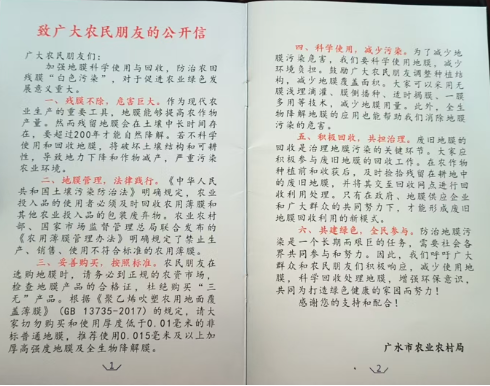 致广大农民朋友的公开信
广大农民朋友们：
加强地膜科学使用与回收，防治农田
残膜“白色污染”，对于促进农业绿色发
展意义重大。
一、残膜不除，危害巨大。作为现代农
业生产的重要工具，地膜能够提高农作物
产量。然而残留地膜会在土壤中长时间存
在，要超过200年才能自然降解。若不科学
使用和回收地膜，将破坏土壤结构和可耕
性，导致地力下降和作物减产，严重污染
农业环境。
二、地膜管理，法律践行。《中华人民
共和国土壤污染防治法》明确规定，农业
投入品的使用者必须及时回收农用薄膜和
其他农业投入品的包装废弃物。农业农村
部、国家市场监督管理总局联合发布的
《农用薄膜管理办法》明确规定了禁止生
产、销售、使用不符合标准的农用薄膜。
三、妥善购买，按照标准。农民朋友在
选购地膜时，请务必到正规的农资市场，
检查地膜产品的合格证，杜绝购买“三
无”产品。根据《聚乙烯吹塑农用地面覆
盖薄膜》（GB 13735-2017）的规定，请大
家切勿购买和使用厚度低于0.01毫米的非
标普通地膜，推荐使用0.015毫米及以上加
厚高强度地膜及全生物降解膜。
1
四、科学使用，减少污染。为了减少地
膜污染危害，我们要科学使用地膜，减少
环境负担。鼓励广大农民朋友调整种植结
构，减少地膜覆盖面积。大家可以采用无
膜浅埋滴灌、膜侧播种、适时揭膜、一膜
多用等技术，减少地膜用量。此外，全生
物降解地膜的应用也能帮助我们消除地膜
污染的危害。
五、积极回收，共担治理。废旧地膜的
回收是治理地膜污染的关键环节。大家应
积极参与废旧地膜的回收工作。在农作物
种植前和收获后，及时捡拾残留在耕地中
的废旧地膜，并将其交至回收网点进行回
收利用处理。只有在政府、地膜供应企业
和广大群众的共同努力下，才能形成废旧
地膜回收利用的新模式。
六、共建绿色，全民参与。防治地膜污
染是一个长期而艰巨的任务，需要社会各
界共同参与和努力。因此，我们呼吁广大
群众和农民朋友们积极响应，减少使用地
膜，科学回收处理地膜，增强环保意识，
共同为打造绿色健康的家园而努力！
感谢您的支持和配合！
广水市农业农村局
2